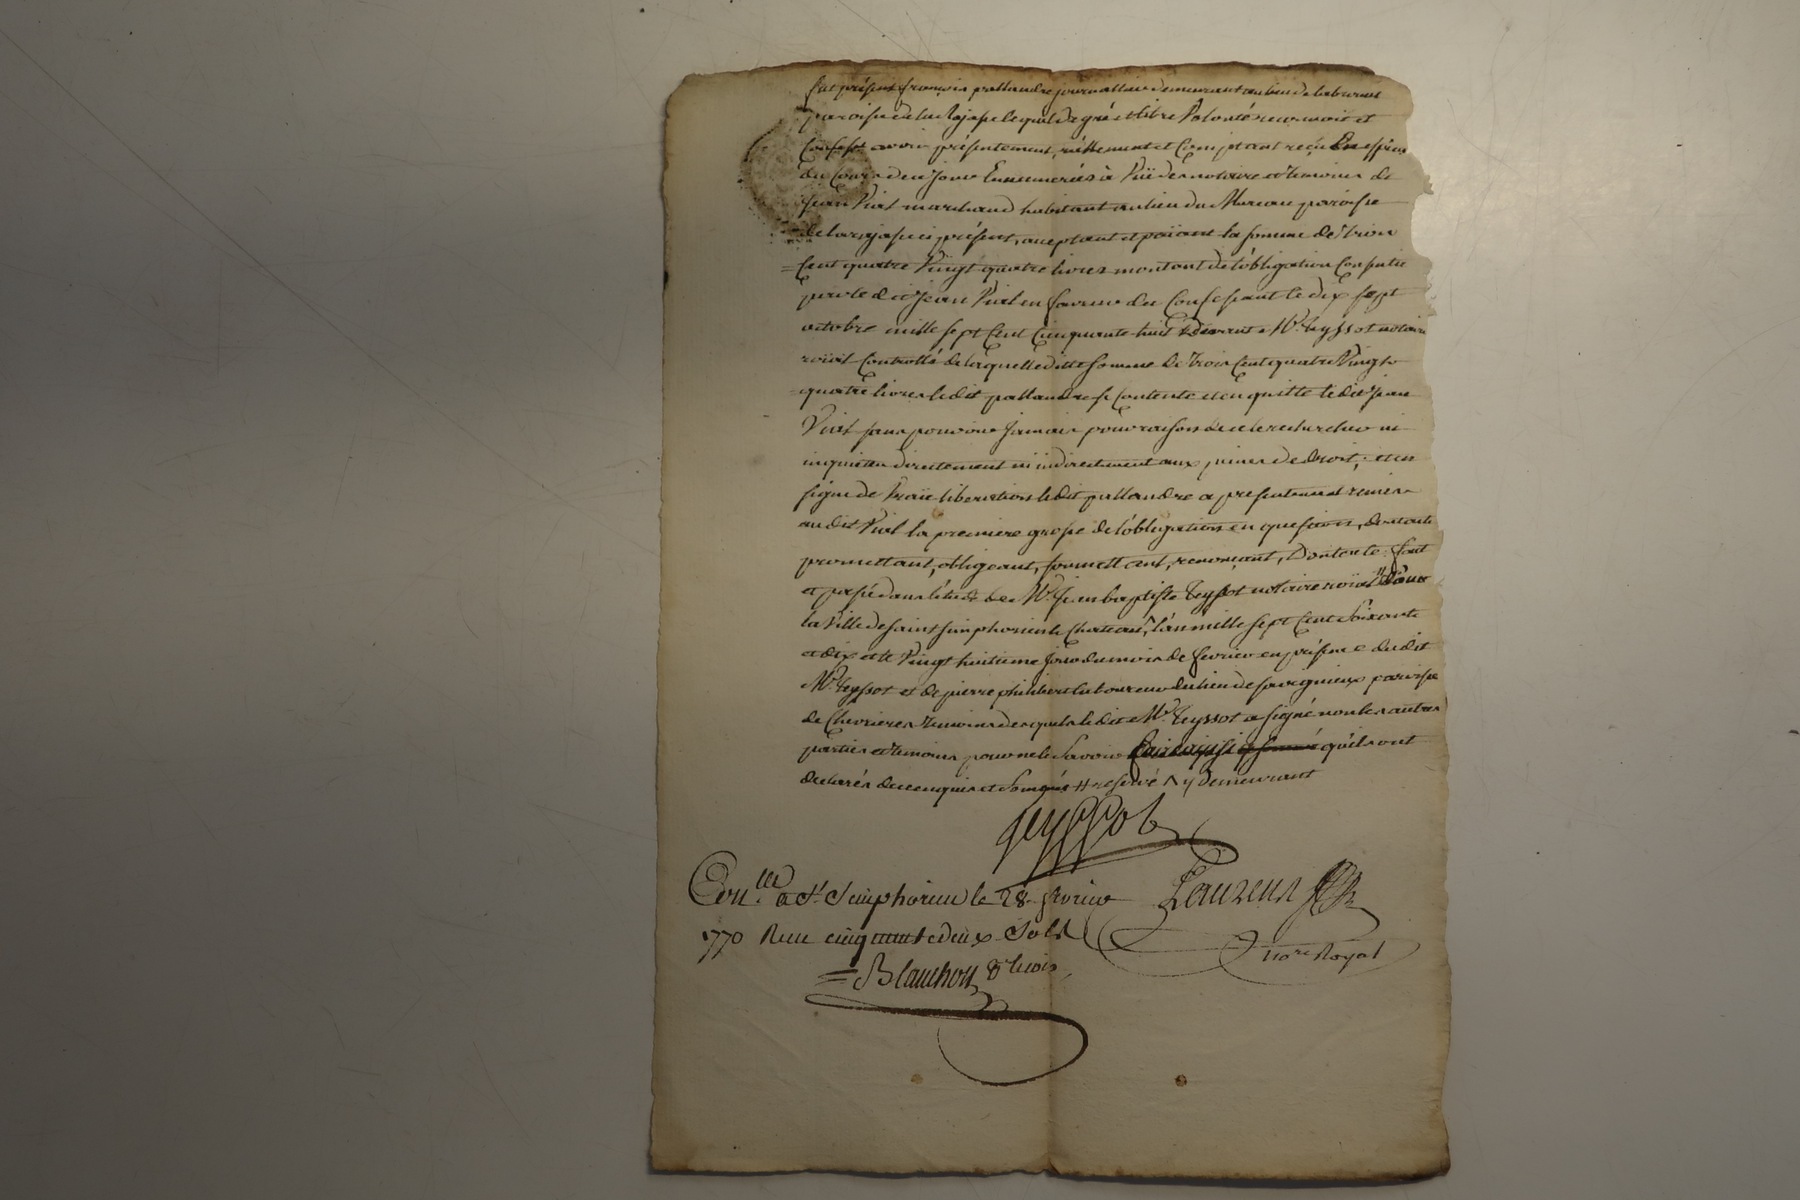 fut présent françois pallandre journallier demeurant au lieu de
paroisse de la Rajasse lequel de gré et libre Volonté reconnoit et
Confesse avoir présentement, réëllement et Comptant reçu En espèces
du Cours de ce Jour Enumerées à Vüë des notaire et temoins de
Jean Viал marchand habitant au lieu du Mureau paroisse
de larajasse ci présent, aceptant et païant la somme de trois
Cent quatre Vingt quatre livres montant de l'obligation Consentie
par le dit Jean Vial en faveur du Confessant le dix sept
octobre mille sept Cent Cinquante huit devant Me. Teyssot notaire
roïal Controllé de laquelle ditte somme de trois Cent quatre Vingt
quatre livres le dit pallandre se Contente et en quitte le dit Jean
Vial sans pouvoir Jamais pour raison de ce le rechercher ni
inquieter directement ni indirectement aux peines de droit, et en
signe de Vraïe liberation le dit pallandre a presentement remis
au dit Vial la premiere grosse de l'obligation en question, dont acte
promettant, obligeant, soumettant, renonçant, Dont acte fait
et passé dans l'étude de Me. Jean baptiste Teyssot notaire roïal
la Ville de saint simphorien le Chateau, l'an mille sept Cent Soixante
et dix et le Vingt huitieme Jour du mois de fevrier en présence du dit
Me. Teyssot et de pierre philibert laboureur du lieu de savigneux paroisse
de Chevrieres temoins desquels le dit Me. Teyssot a signé non les autres
parties et temoins pour ne le Savoir qu'ils ont
declarés de ce enquis et Sommés # reservé ^ y demeurant
Teyssot
Con.llé a St. Simphorien le 28. fevrier
1770 Recu cinquante deux Sols
= Blanchon
Laurens
no.re Royal